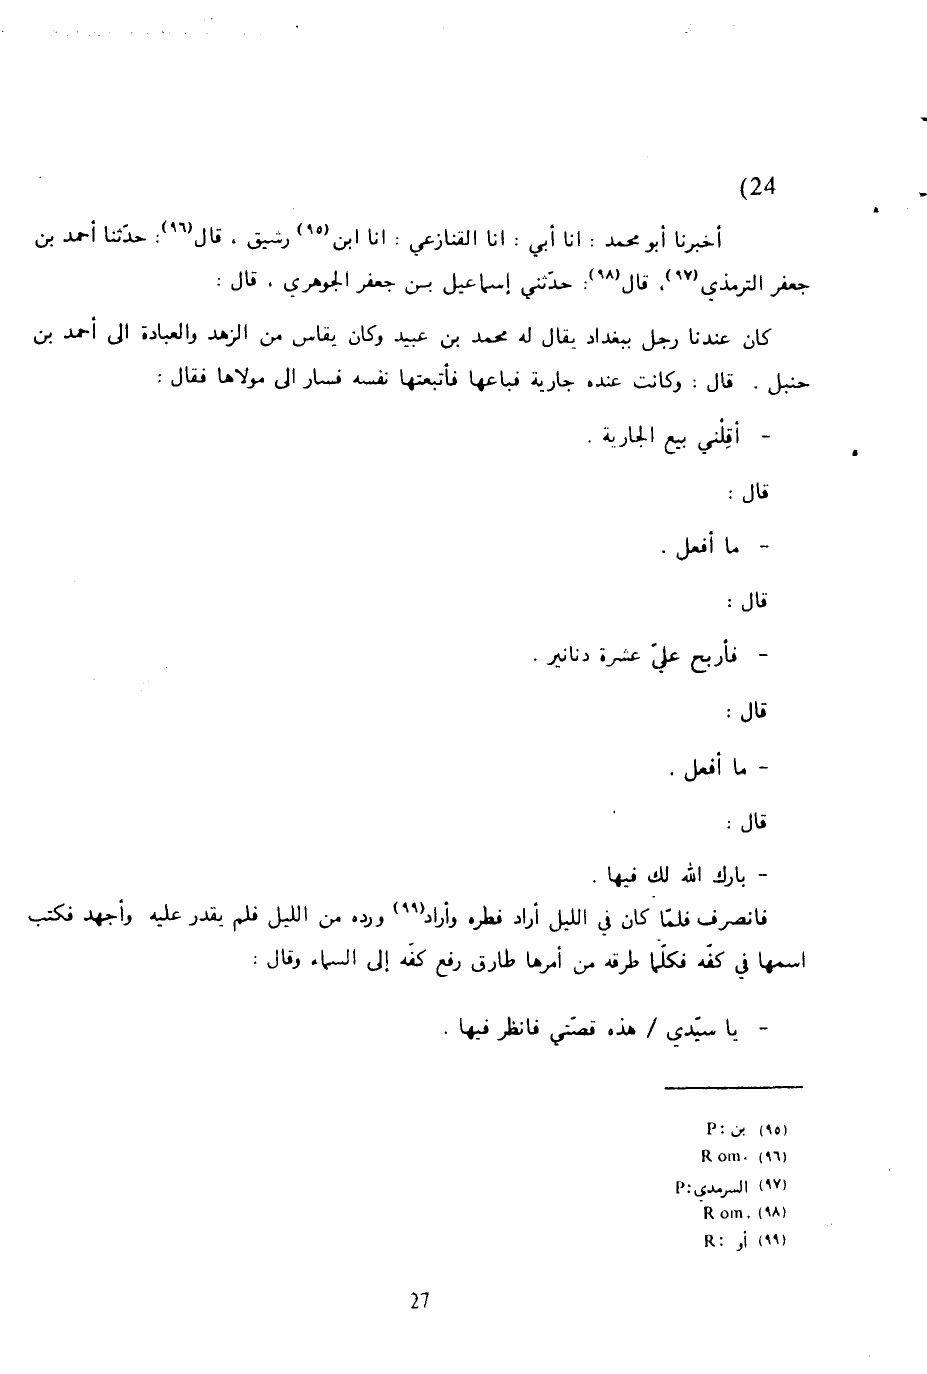 (24
أخبرنا أبو محمد : انا أبي : انا القنازعي : انا ابن(٩٥) رشيق ، قال(٩٦): حدّثنا أحمد بن
جعفر الترمذي(٩٧)، قال(٩٨): حدّثني إسماعيل بن جعفر الجوهري ، قال :
كان عندنا رجل ببغداد يقال له محمد بن عبيد وكان يقاس من الزهد والعبادة الى أحمد بن
حنبل . قال : وكانت عنده جارية فباعها فأتبعتها نفسه فسار الى مولاها فقال :
- أقِلْني بيع الجارية .
قال :
- ما أفعل .
قال :
- فأربح عليّ عشرة دنانير .
قال :
- ما أفعل .
قال :
- بارك الله لك فيها .
فانصرف فلمّا كان في الليل أراد فطره وأراد(٩٩) ورده من الليل فلم يقدر عليه وأجهد فكتب
اسمها في كفّه فكلّما طرقه من أمرها طارق رفع كفّه إلى السماء وقال :
- يا سيّدي / هذه قصّتي فانظر فيها .
(٩٥) بن :P
(٩٦) R om.
(٩٧) السرمدي :P
(٩٨) R om.
(٩٩) أو :R
27